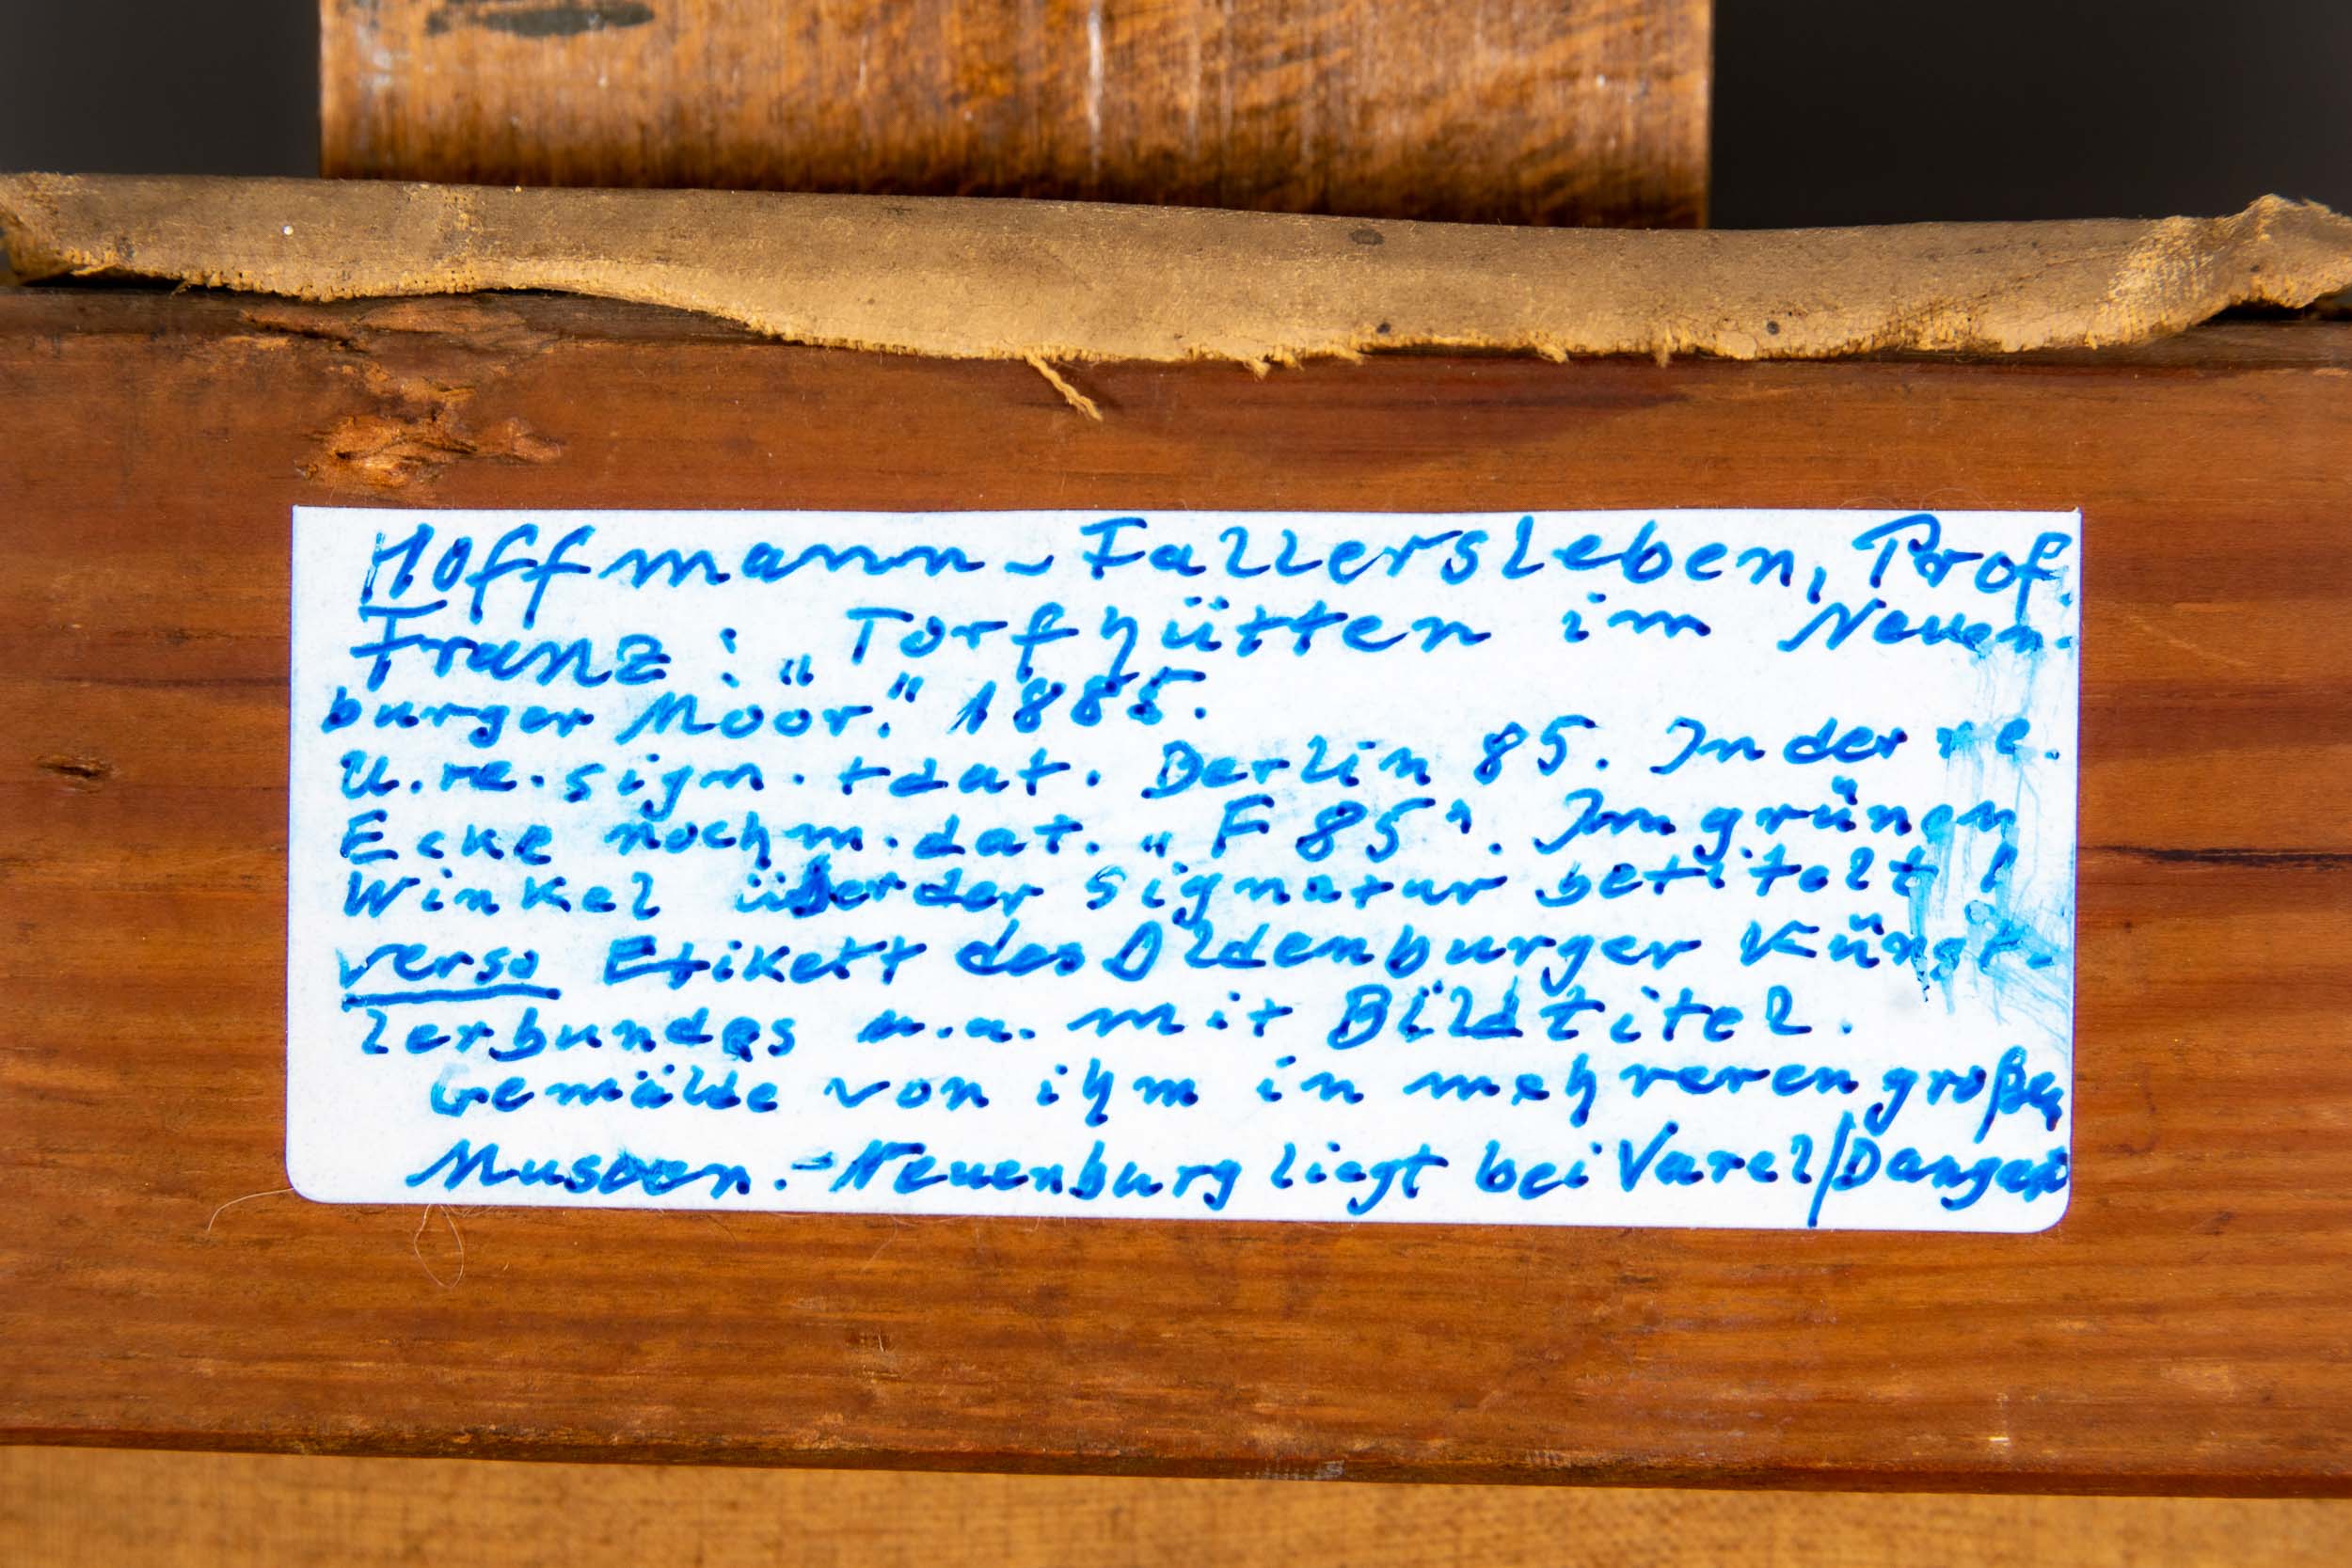 Hoffmann-Fallersleben, Prof.
Franz: „Torfhütten im Neuen-
burger Moor." 1885.
U.re.sign.+dat. Berlin 85. In der re.
Ecke nochm.dat. „F 85". Im grünen
Winkel über der Signatur betitelt!
verso Etikett des Oldenburger Künst-
lerbundes u.a. mit Bildtitel.
Gemälde von ihm in mehreren großen
Museen.-Neuenburg liegt bei Varel/Dangast